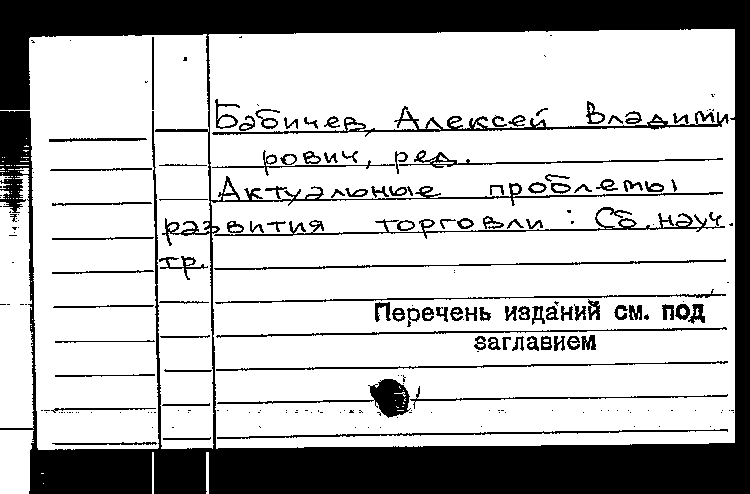 Бабичев, Алексей Владими-
рович, ред.
Актуальные проблемы
развития торговли : Сб. науч.
тр.
Перечень изданий см. под
заглавием